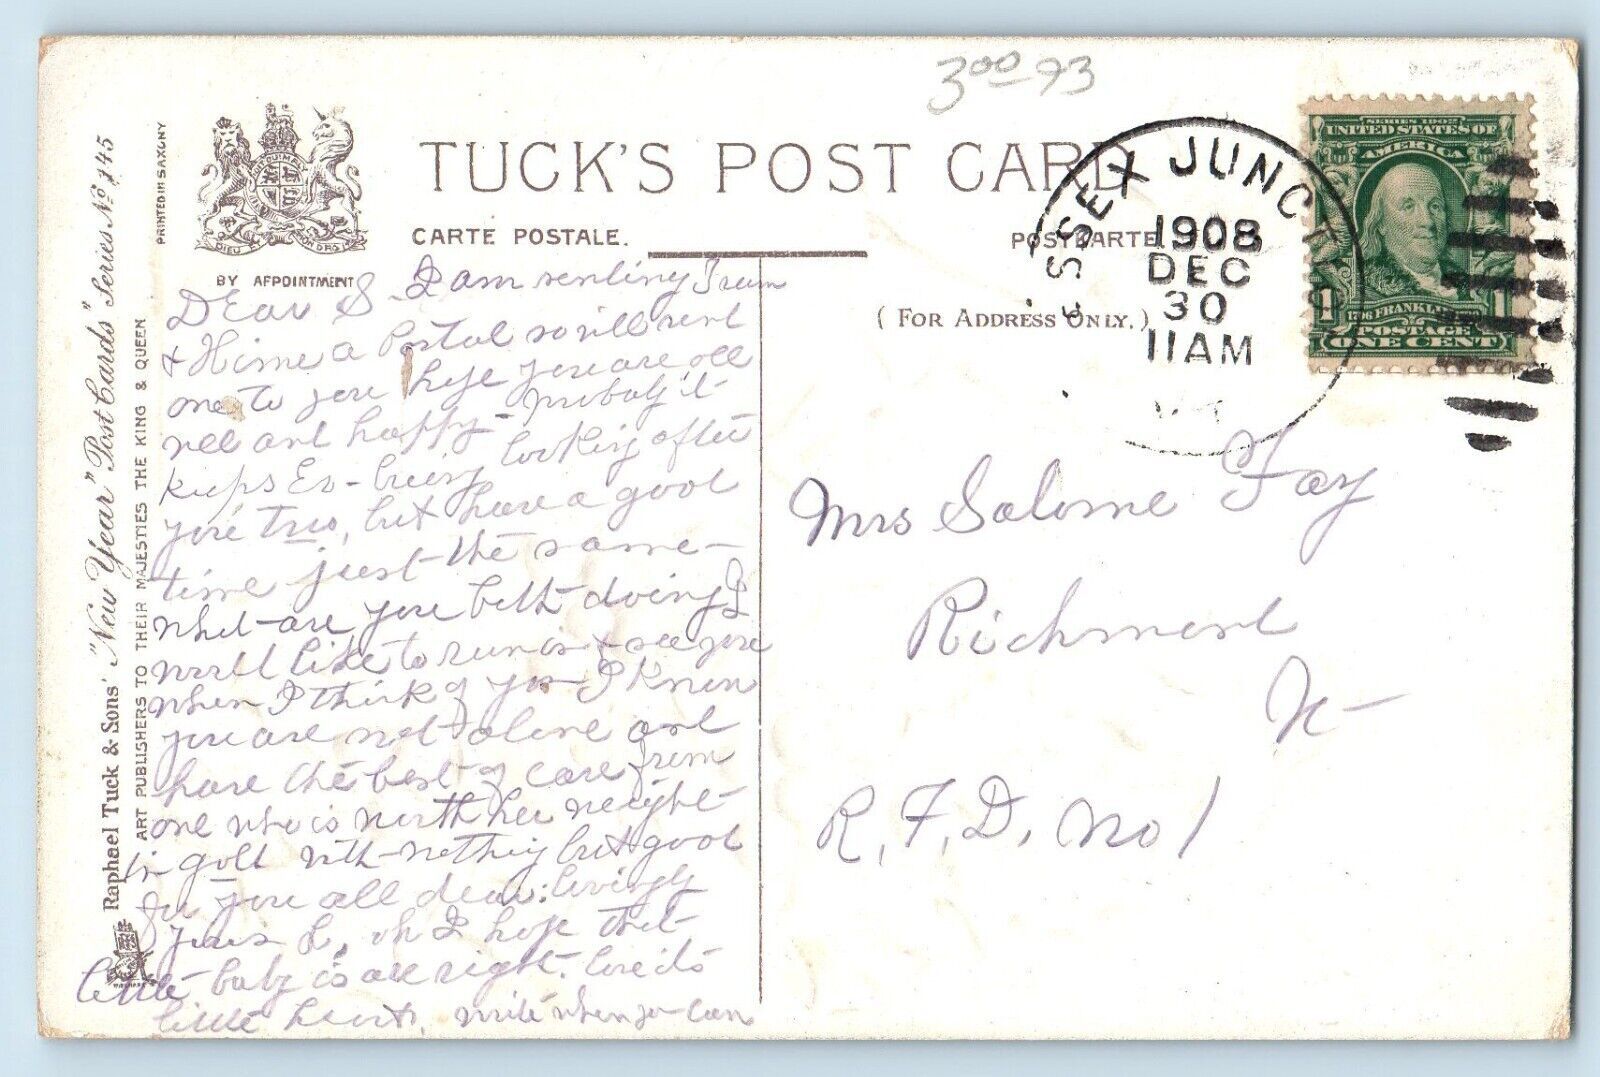 3⁰⁰ 93
TUCK'S POST CARD
CARTE POSTALE.
POSTKARTE
(FOR ADDRESS ONLY.)
BY APPOINTMENT
PRINTED IN SAXONY
Raphael Tuck & Sons' "New Year" Post Cards" Series No. 145
ART PUBLISHERS TO THEIR MAJESTIES THE KING & QUEEN
ESSEX JUNCTION
1908
DEC
30
11AM
SERIES 1902
UNITED STATES OF
AMERICA
1 FRANKLIN 1
POSTAGE
ONE CENT
Dear S. I am sending
& a Postal so will send
one to you hope you are all
well and happy - probaly it
keeps Ev- busy looking after
you two, but have a good
time just the same -
what are you both doing I
would like to run in & see you
when I think of you I know
you are not alone and
have the best of care from
one who is worth her weight
in gold with nothing but good
for you all dear: lovingly
yours L. oh I hope that
little baby is all right. love its
little heart, write when you can
Mrs Salome Fay
Richmond
Vt
R. F. D. No 1